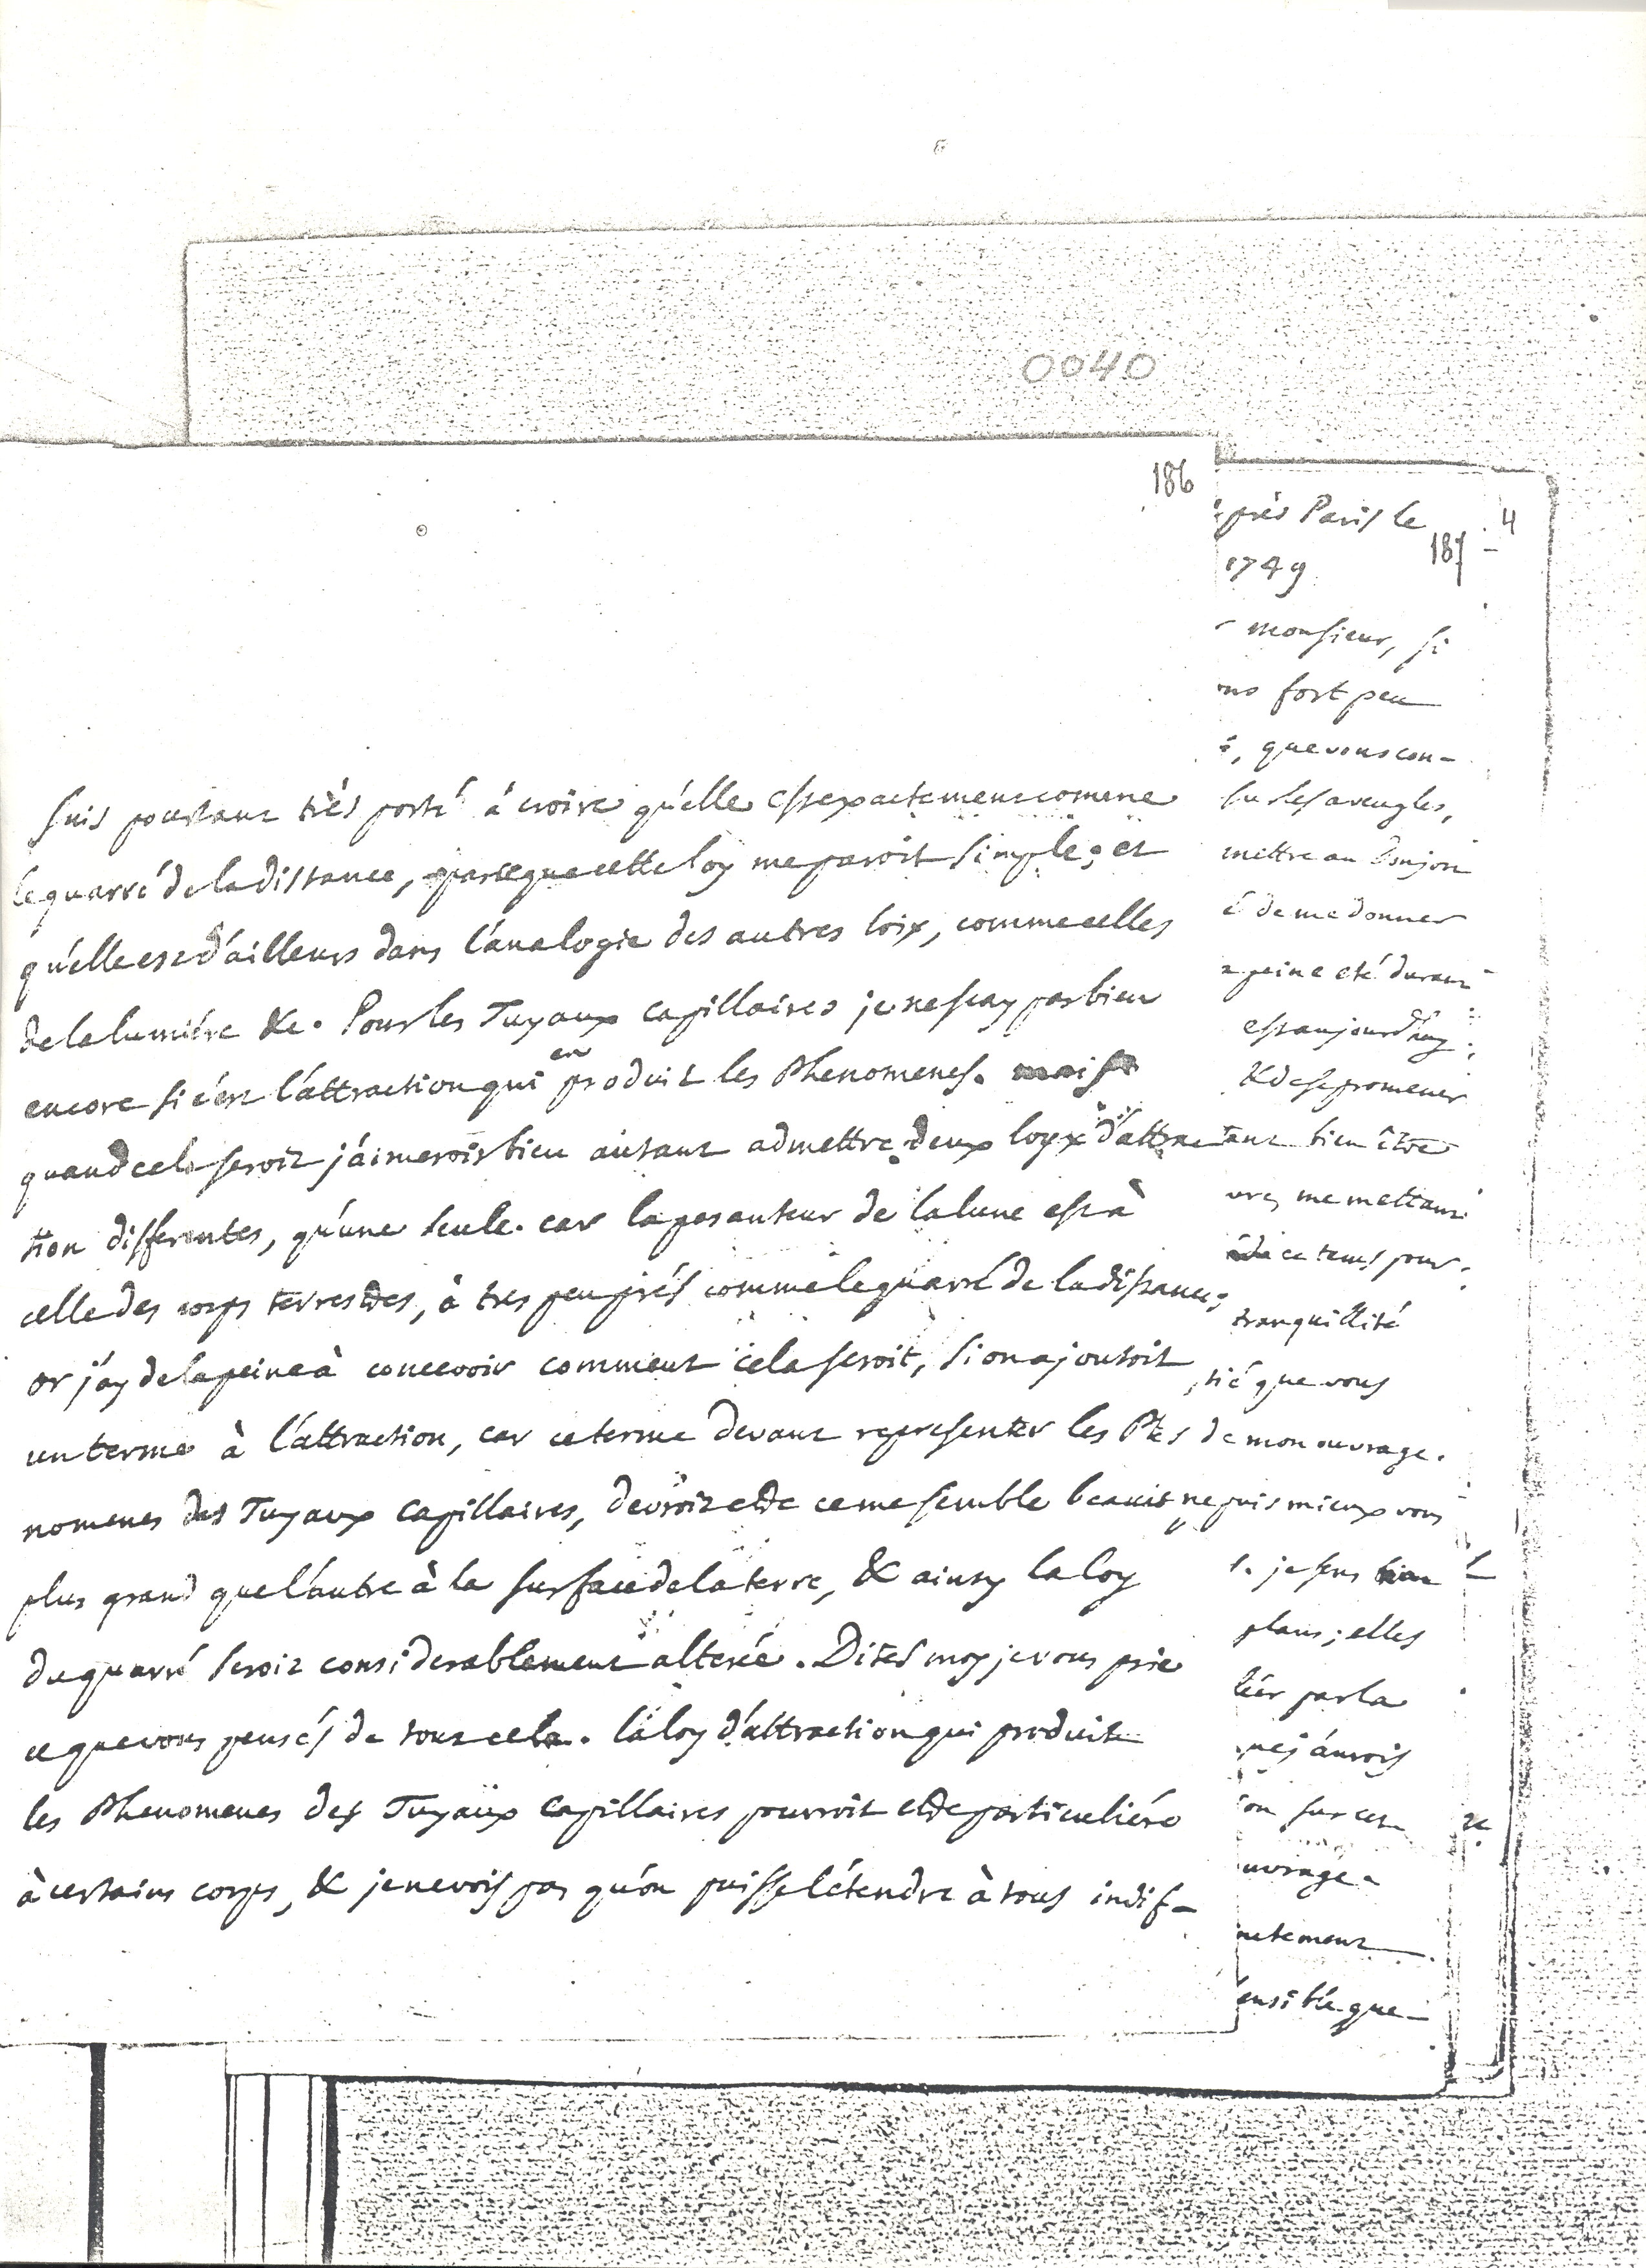 0040
186
suis pourtant très porté à croire qu'elle est exactement comme
le quarré de la distance, parceque cette loy me paroit simple; et
qu'elle est d'ailleurs dans l'analogie des autres loix, comme celles
de la lumiére &c. Pour les Tuyaux capillaires je ne scay pas bien
encore si c'est l'attraction qui en produit les Phenomenes. mais
quand cela seroit j'aimerois bien autant admettre deux loyx d'attrac
tion differentes, qu'une seule. car la pesanteur de la lune est à
celle des corps terrestres, à tres peu prés comme le quarré de la distance;
or j'ay de la peine à concevoir comment cela seroit, si on ajoutoit
un terme à l'attraction, car ce terme devant representer les Phe
nomenes des Tuyaux capillaires, devroit etre ce me semble beauc
plus grand que l'autre à la surface de la terre, & ainsy la loy
du quarré seroit considerablement alterée. Dites moy je vous prie
ce que vous pensés de tout cela. la loy d'attraction qui produit
les Phenomenes des Tuyaux capillaires pourroit etre particuliére
à certains corps, & je ne vois pas qu'on puisse l'étendre à tous indif-
près Paris le
4
187
1749
monsieur, si
ons fort peu
, que vous con-
sur les aveugles,
mettre au Donjon
é de me donner
peine eté durant
est aujourd'huy
& de se promener
tant bien être
me mettant
ce tems pour
tranquillité
tié que vous
de mon ouvrage.
ne puis mieux vous
. je sens
plans; elles
par la
que j'aurois
on sur cet
uvrage.
ensible que